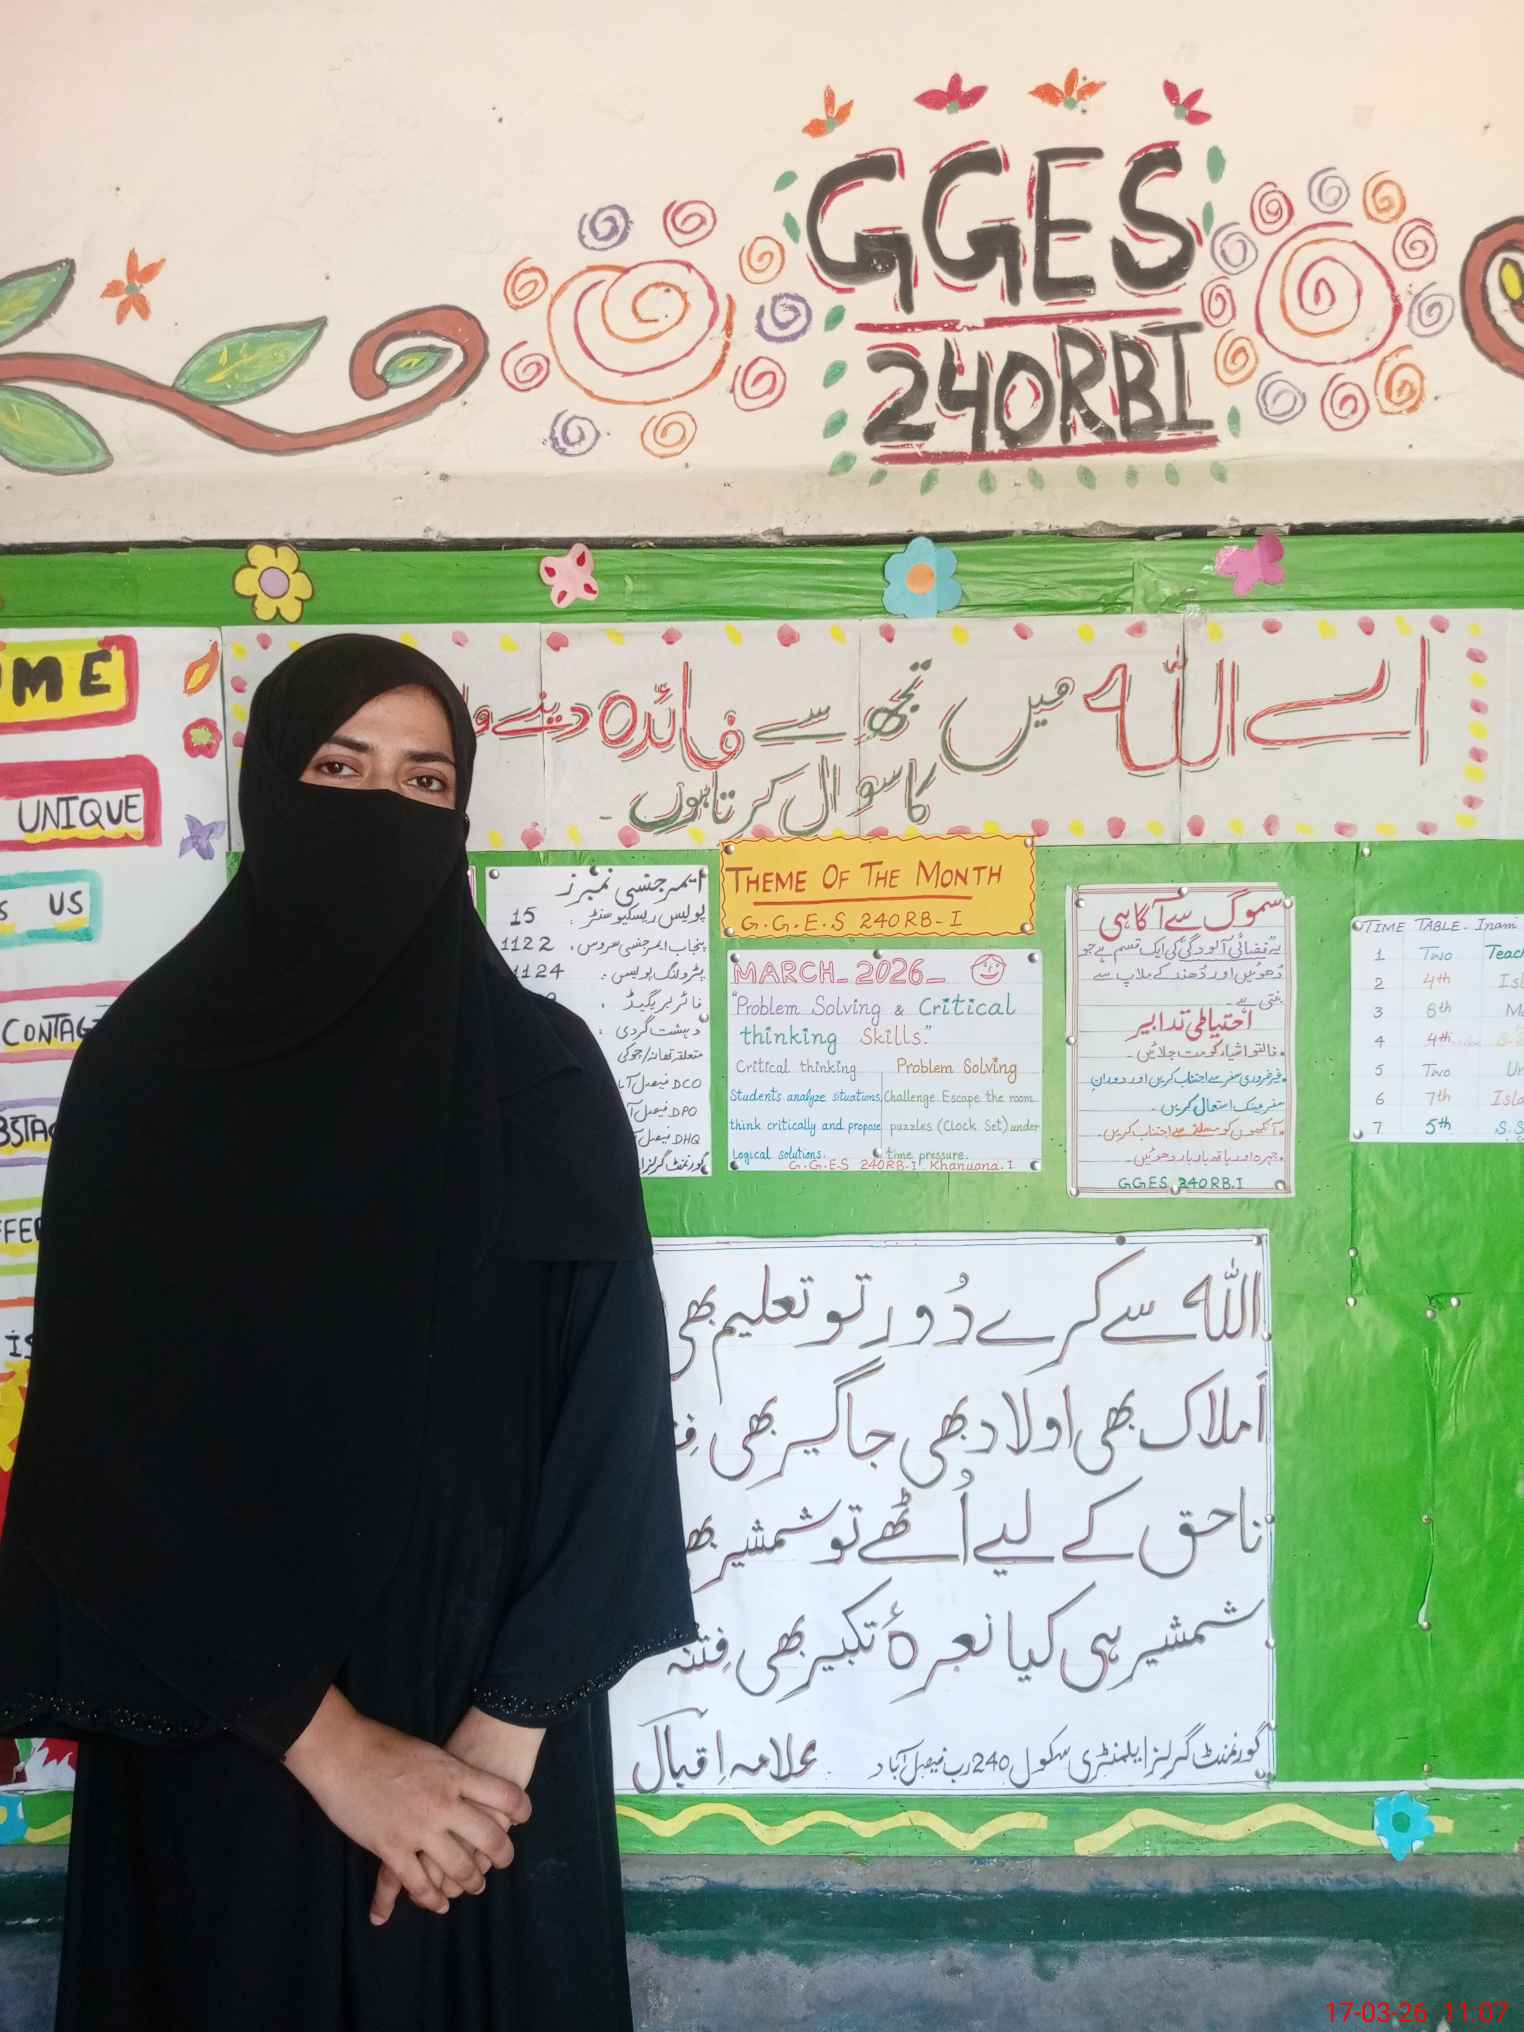 GGES
240RBI
UNIQUE
US
اے اللہ میں تجھ سے فائدہ دینے
کا سوال کرتا ہوں۔
ایمرجنسی نمبرز
پولیس ریسکیو سنٹر : 15
پنجاب ایمرجنسی سروس : 1122
پٹرولنگ پولیس : 1124
فائر بریگیڈ :
دہشت گردی :
متعلقہ تھانہ/چوکی
DCO
DPO
DHQ
THEME OF THE MONTH
G.G.E.S 240RB-I
MARCH_2026_
"Problem Solving & Critical
thinking Skills."
Critical thinking
Students analyze situations,
think critically and propose
logical solutions.
Problem Solving
Challenge. Escape the room
puzzles (Clock Set) under
time pressure.
G.G.E.S 240RB-I Khanuana.I
سموگ سے آگاہی
یہ فضائی آلودگی کی ایک قسم ہے جو
دھوئیں اور دھند کے ملاپ سے
بنتی ہے۔
احتیاطی تدابیر
فالتو اشیاء کو مت جلائیں۔
غیر ضروری سفر سے اجتناب کریں اور دوران
سفر عینک استعمال کریں۔
آنکھوں کو مسلنے سے اجتناب کریں۔
چہرہ اور ہاتھ بار بار دھوئیں۔
GGES 240RB.I
TIME TABLE - Inam
1 Two
2 4th
3 8th
4 4th
5 Two
6 7th
7 5th
اللہ سے کرے دُور تو تعلیم بھی
اَملاک بھی اولاد بھی جاگیر بھی
ناحق کے لیے اُٹھے تو شمشیر
شمشیر ہی کیا نعرۂ تکبیر بھی فِتنہ
علامہ اِقبال
گورنمنٹ گرلز ایلمنٹری سکول 240 رب فیصل آباد
17-03-26 11:07